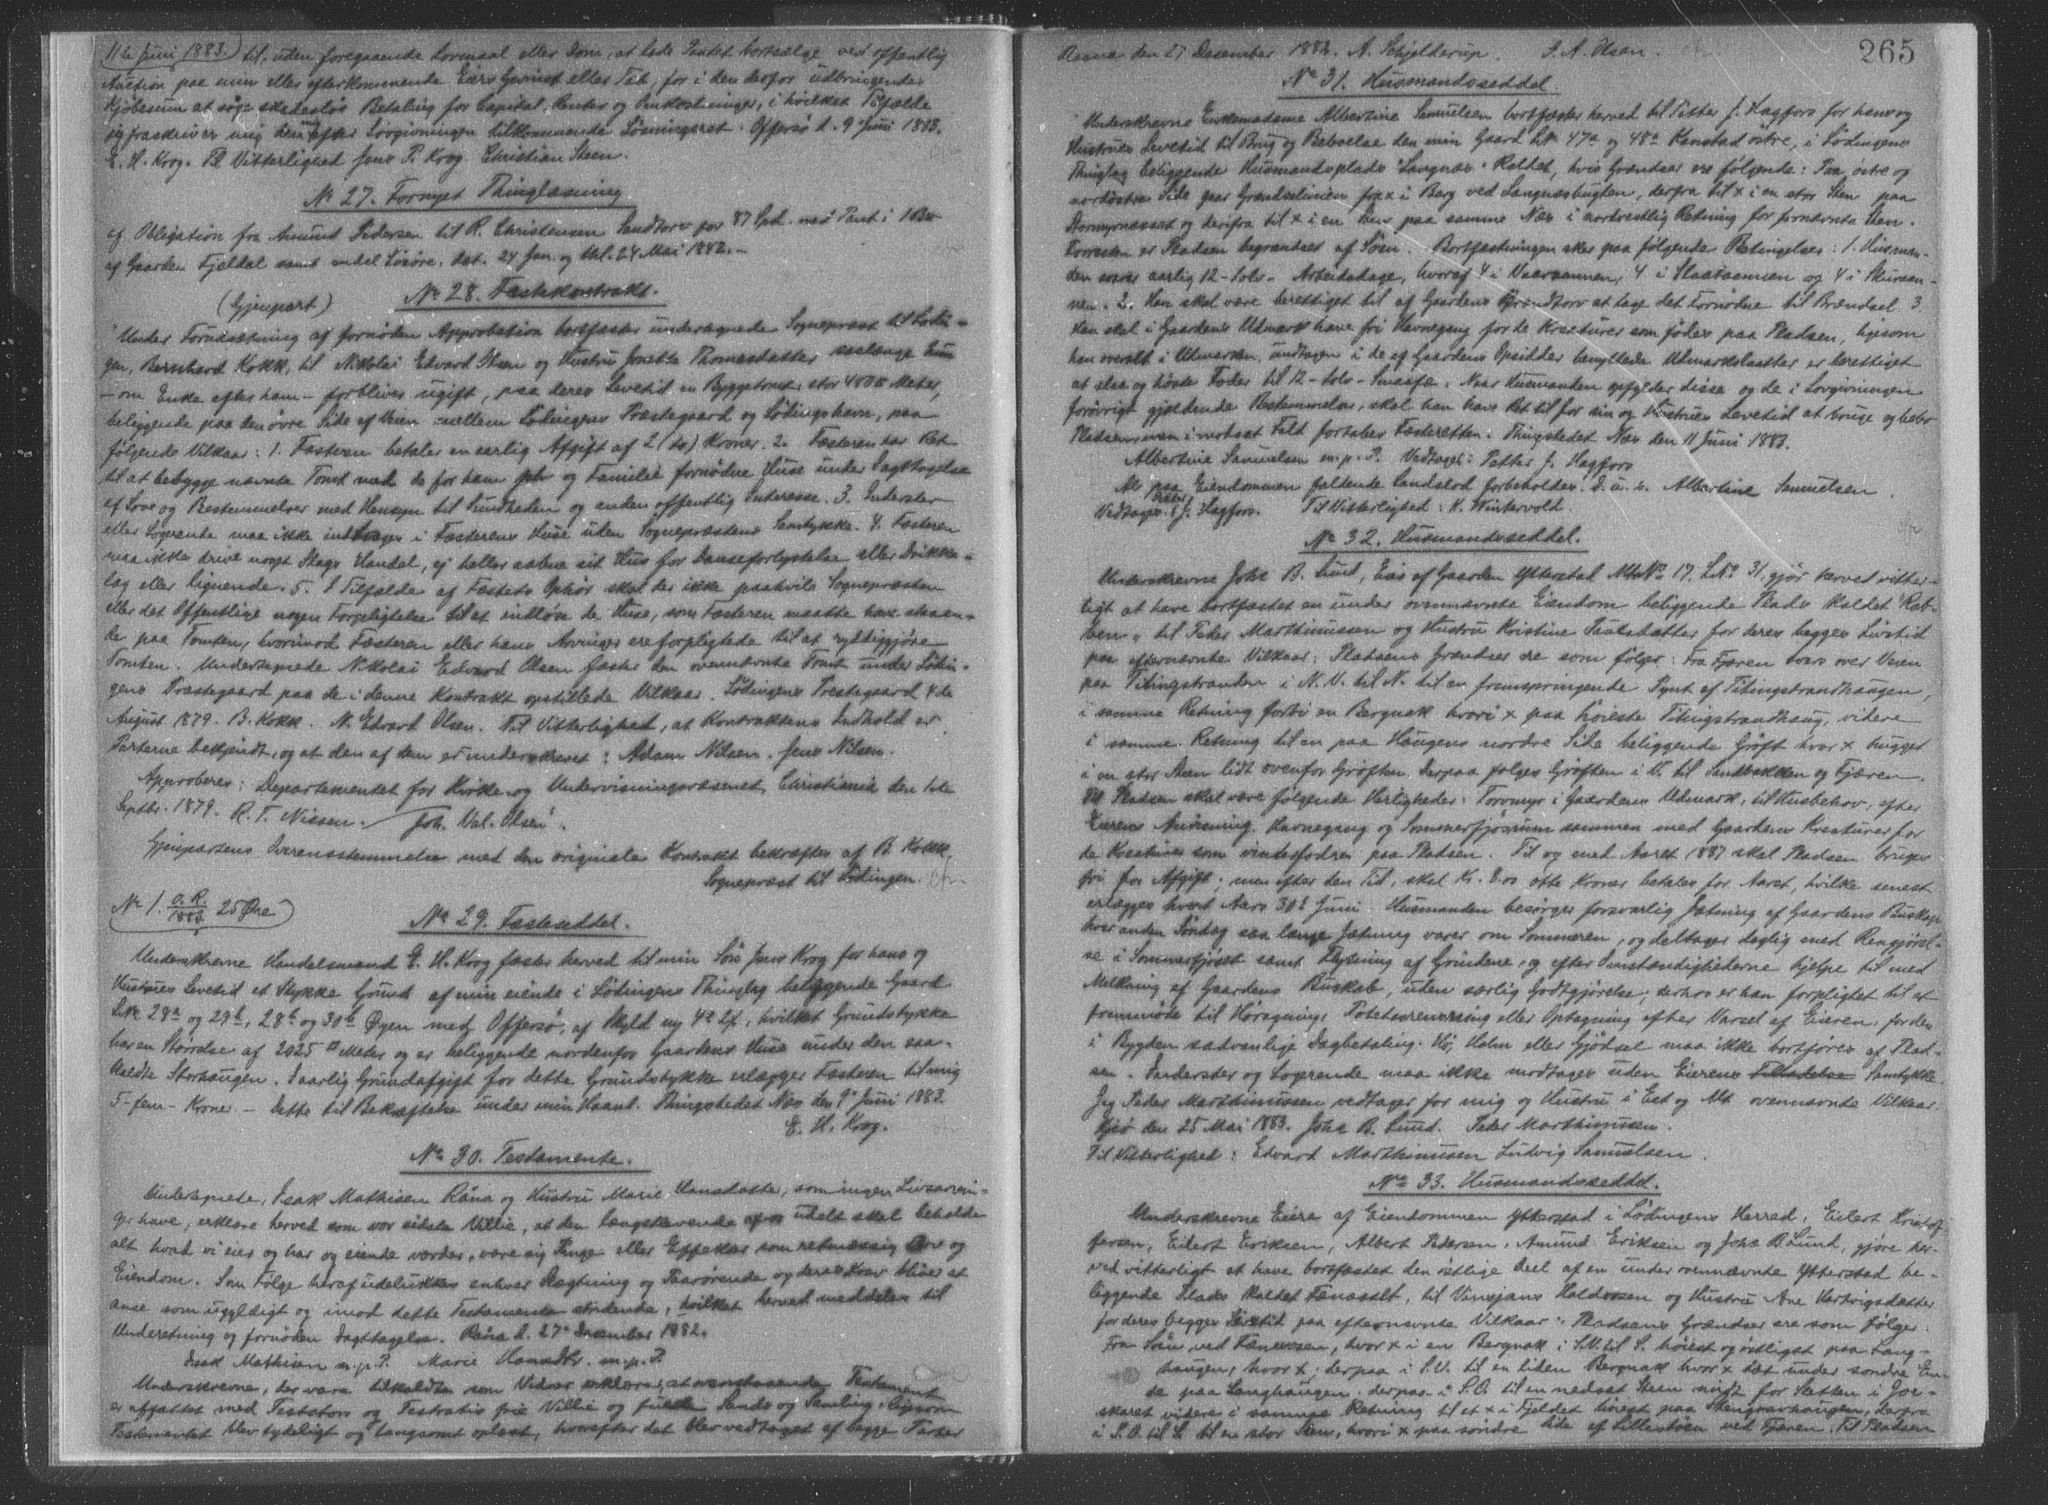 11te Juni 1883.) til, uden foregaaende Lovmaal eller Dom, at lade Pantet bortsælge ved offentlig
Auction paa min eller efterkommende Eiers Gevinst eller Tab, for i den derfor udbringende
Kjøbesum at søge skadesløs Betaling for Capital, Renter og Omkostninger, i hvilket Tilfælde
jeg fraskriver mig den mig efter Lovgivningen tilkommende Løsningsret. Offersø d. 9 Juni 1883.
E. H. Krog. Til Vitterlighed Jens P. Krog. Christian Steen.
No 27. Fornyet Thinglæsning
af Obligation fra Amund Pedersen til R. Christensen Sandtorv for 87 Spd. med Pant i 1 Bu
af Gaarden Fjeldal samt endel Løsøre, dat. 24 Jan. og thl. 24 Mai 1842. -
(Gjenpart) No 28. Festekontrakt.
Under Forudsætning af fornøden Approbation bortfæster undertegnede Sogneprest til Lødin-
gen, Bernhard Kokk, til Nikolai Edvard Olsen og Hustru Jonetta Thomasdatter saalænge hun
- om Enke efter ham - forbliver ugift, paa deres Levetid en Byggetomt, stor 480 □ Meter,
beliggende paa den øvre Side af Veien mellem Lødingens Præstegaard og Lødingshavn, paa
følgende Vilkaar: 1. Fæsteren betaler en aarlig Afgift af 2 (to) Kroner. 2. Fæsteren har Ret
til at bebygge nævnte Tomt med de for ham selv og Familie fornødne Huse under Iagttagelse
af Love og Bestemmelser med Hensyn til Sundheden og anden offentlig Interesse. 3. Inderster
eller Logerende maa ikke indtages i Fæsterens Huse uden Sogneprestens Samtykke. 4. Fæsteren
maa ikke drive noget Slags Handel, ej heller aabne sit Hus for Danseforlystelse eller Drikke-
lag eller lignende. 5. I Tilfælde af Fæstets Ophør skal der ikke paahvile Sognepræsten
eller det Offentlige nogen Forpligtelse til at indløse de Huse, som Fæsteren maatte have staaen-
de paa Tomten, hvorimod Fæsteren eller hans Arvinger ere forpligtede til at ryddiggjøre
Tomten. Undertegnede Nikolai Edvard Olsen fæster den ovennævnte Tomt under Lødin-
gens Præstegaard paa de i denne Kontrakt opstillede Vilkaar. Lødingens Prestegaard 4de
August 1879. B. Kokk. N. Edvard Olsen. Til Vitterlighed, at Kontraktens Indhold er
Parterne bekjendt, og at den af dem er underskrevet: Adam Nilsen. Jens Nilsen.
Approberes: Departementet for Kirke- og Undervisningsvæsenet, Christiania den 1ste
Septbr. 1879. R. T. Nissen. / Joh. Val. Olsen.
Gjenpartens Overensstemmelse med den originale Kontrakt bekræftes af B. Kokk,
Sogneprest til Lødingen. Cfr.
No 1. O.R./1883 25 Øre
No 29. Festeseddel.
Underskrevne Handelsmand E. H. Krog fæster herved til min Søn Jens Krog for hans og
Hustrues Levetid et Stykke Grund af min eiende i Lødingens Thinglag beliggende Gaard
LNr. 28a og 29b, 28b og 30b Øyen med Offersø, af Skyld ny 4. 2f., hvilket Grundstykke
har en Størrelse af 2025 □ Meter og er beliggende nordenfor Gaardens Huse under den saa-
kaldte Storhaugen. I aarlig Grundafgift for dette Grundstykke erlægger Fæsteren til mig
5 - fem - Kroner. - Dette til Bekræftelse under min Haand. Thingstedet Næs den 9de Juni 1883.
E. H. Krog.
No 30. Testamente.
Undertegnede, Isak Mathisen Råna og Hustru Marie Hansdatter, som ingen Livsarvin-
ger have, erklære herved som vor sidste Villie, at den længstlevende af os udelt skal beholde
alt hvad vi eier og har og eiende vorder, være sig Penge eller Effekter som retmæssig Arv og
Eiendom. Som Følge heraf udelukkes enhver Slægtning og Paarørende og deres Krav bliver at
anse som ugyldigt og imod dette Testamente stridende, hvilket herved meddeles til
Underretning og fornøden Iagttagelse. Råna d. 27de December 1882.
Isak Mathisen m.p.P. Marie Hansdtr. m.p.P.
Underskrevne, der vare tilkaldte som Vidner erklærer, at ovenstaaende Testament
er affattet med Testators og Testratix frie Villie og fulde Sands og Samling, ligesom
Testamentet blev tydeligt og langsomt oplæst, hvorefter det blev vedtaget af begge Parter
265
Raana den 27 Desember 1882. A. Schjelderup. J. A. Olsen. Cfr.
No 31. Husmandsseddel
Underskrevne Enkemadame Albertine Samuelsen bortfæster herved til Petter J. Hagfors for hans og
Hustrues Levetid til Brug og Beboelse den min Gaard LNr 47a og 48a Kanstad østre, i Lødingens
Thinglag beliggende Husmandsplads "Langnæs" kaldet, hvis Grændser ere følgende: Paa østre og
nordøstre Side gaar Grændselinien fra x i Berg ved Langnæsbugten, derfra til x i en stor Sten paa
Stormyrnæsset og derifra til x i en Sten paa samme Næs i nordvestlig Retning for fornævnte Sten.
Forresten er Pladsen begrændset af Søen. Bortfæstningen sker paa følgende Betingelser: 1. Husman-
den svarer aarlig 12 - tolv - Arbeidsdage, hvoraf 4 i Vaaraannen, 4 i Slaataannen og 4 i Skuraan-
nen. 2. Han skal være berettiget til af Gaardens Brændtorv at tage det Fornødne til Brændsel. 3.
Han skal i Gaardens Udmark have fri Havnegang for de Kreaturer som fødes paa Pladsen, ligesom
han overalt i Udmarken, undtagen i de af Gaardens Opsidder benyttede Udmarkslaatter er berettiget
at slaa og høste Foder til 12 - tolv - Smaafæ. Naar Husmanden opfylder disse og de i Lovgivningen
forøvrigt gjældende Bestemmelser, skal han have Ret til for sin og Hustrues Levetid at bruge og bebo
Pladsen, men i modsat Fald fortaber Fæsteretten. Thingstedet Næs den 11 Juni 1883.
Albertine Samuelsen m.p.P. Vedtages: Petter J. Hagfors
Al paa Eiendommen faldende Landslod forbeholdes. D.u.s. Albertine Samuelsen.
Vedtages: Petter J. Hagfors. Til Vitterlighed: K. Wintervold.
No 32. Husmandsseddel.
Underskrevne Johs B. Lund, Eier af Gaarden Ytterstad MtrNo 17. LNo 31, gjør herved vitter-
ligt at have bortfæstet en under ovennævnte Eiendom beliggende Plads kaldet "Rab-
ben" til Peder Marthinussen og Hustru Kristine Paulsdatter for deres begges Livstid
paa efternævnte Vilkaar: Pladsens Grændser ere som følger: Fra Fjæren tvers over Veien
paa Titingstranden i N.V. til N. til en fremspringende Pynt af Titingstrandhaugen,
i samme Retning forbi en Bergnak hvori x paa høieste Titingstrandhaug, videre
i samme Retning til en paa Haugens nordre Side beliggende Grøft hvor x hugget
i en stor Steen lidt ovenfor Grøften. Derpaa følges Grøften i V. til Sandbakken og Fjæren.
Til Pladsen skal være følgende Herligheder: Torvmyr i Gaardens Udmark, til Husbehov, efter
Eierens Anvisning. Havnegang og Sommerfjøsrum sammen med Gaardens Kreaturer for
de Kreaturer som vinterfodres paa Pladsen. Til og med Aaret 1887 skal Pladsen bruges
fri for Afgift; men efter den Tid, skal Kr. 8.00 otte Kroner betales for Aaret, hvilke senest
erlægges hvert Aars 30te Juni. Husmanden besørger forsvarlig Jætning af Gaardens Buskap
hver anden Søndag saa længe Jætning varer om Sommeren, og deltager daglig med Rengjørel-
se i Sommerfjøset samt Flytning af Grindene, og efter Omstændighederne hjelpe til med
Melkning af Gaardens Buskab, uden særlig Godtgjørelse; derhos er han forpligtet til at
fremmøde til Høragning, Poteterensning eller Optagning efter Varsel af Eieren, for den
i Bygden sædvanlige Dagbetaling. Hø, Halm eller Gjødsel maa ikke bortføres af Plad-
sen. Inderster og Logerende maa ikke modtages uden Eierens Tilladelse Samtykke.
Jeg Peder Marthinussen vedtager for mig og Hustru i Eet og Alt ovennævnte Vilkaar.
Kjø den 25 Mai 1883. Johs B. Lund. Peder Marthinussen.
Til Vitterlighed: Edvard Marthinussen Ludvig Samuelsen.
No 33. Husmandsseddel.
Underskrevne Eiere af Eiendommen Ytterstad i Lødingens Herred, Eilert Kristof-
fersen, Eilert Eriksen, Albert Pedersen, Amund Eriksen og Johs B. Lund, gjøre her-
ved vitterligt at have bortfæstet den østlige Deel af en under ovennævnte Ytterstad be-
liggende Plads kaldet Fænæsdt, til Vinsjans Haldorsen og Hustru Ane Hartvigsdatter
for deres begges Livstid paa efternævnte Vilkaar: Pladsens Grændser ere som følger:
Fra Søen ved Fænæssen, hvor x i en Bergnak i S.V. til S. høiest og østligst paa Lang-
haugen, hvor x, derpaa i S.V. til en liden Bergnak hvor x tæt under søndre En-
de paa Langhaugen, derpaa i S.O. til en nedsat Steen midt for Sletten i Joe-
skaret videre i samme Retning til et x i Fjeldet høiest paa Stengravhaugen, derfra
i S.O. til S. til en stor Sten, hvori x paa søndre Side af Lillestøen ved Fjæren. Til Pladsen